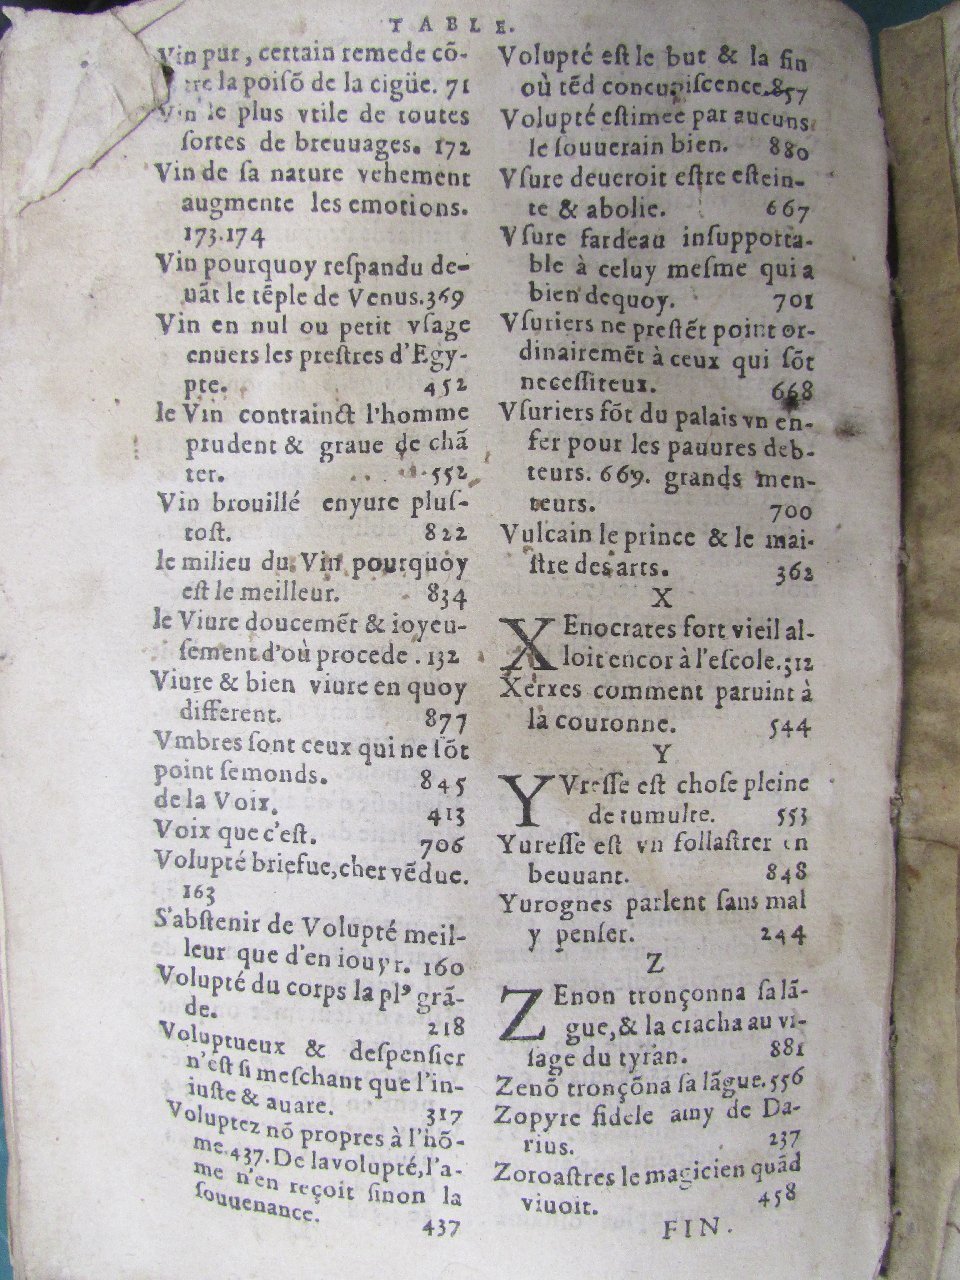 TABLE.
Vin pur, certain remede cõ-
tre la poisõ de la cigüe. 71
Vin le plus vtile de toutes
ſortes de breuuages. 172
Vin de ſa nature vehement
augmente les emotions.
173.174
Vin pourquoy reſpandu de-
uãt le tẽple de Venus. 369
Vin en nul ou petit vſage
enuers les preſtres d'Egy-
pte. 452
le Vin contrainct l'homme
prudent & graue de chã
ter. 552
Vin brouillé enyure pluſ-
toſt. 822
le milieu du Vin pourquoy
eſt le meilleur. 834
le Viure doucemẽt & ioyeu-
ſement d'où procede. 132
Viure & bien viure en quoy
different. 877
Vmbres ſont ceux qui ne ſõt
point ſemonds. 845
de la Voix. 413
Voix que c'eſt. 706
Volupté briefue, cher vẽdue.
163
S'abſtenir de Volupté meil-
leur que d'en iouyr. 160
Volupté du corps la pl⁹ grã-
de. 218
Voluptueux & deſpenſier
n'eſt ſi meſchant que l'in-
iuſte & auare. 317
Voluptez nõ propres à l'hõ-
me. 437. De la volupté, l'a-
me n'en reçoit ſinon la
ſouuenance. 437
Volupté eſt le but & la fin
où tẽd concupiſcence. 857
Volupté eſtimee par aucuns
le ſouuerain bien. 880
Vſure deueroit eſtre eſtein-
te & abolie. 667
Vſure fardeau inſupporta-
ble à celuy meſme qui a
bien dequoy. 701
Vſuriers ne preſtẽt point or-
dinairemẽt à ceux qui ſõt
neceſſiteux. 668
Vſuriers fõt du palais vn en-
fer pour les pauures deb-
teurs. 669. grands men-
teurs. 700
Vulcain le prince & le mai-
ſtre des arts. 362
X
XEnocrates fort vieil al-
loit encor à l'eſcole. 512
Xerxes comment paruint à
la couronne. 544
Y
YVreſſe eſt choſe pleine
de tumulte. 553
Yureſſe eſt vn follaſtrer en
beuuant. 848
Yurognes parlent ſans mal
y penſer. 244
Z
ZEnon tronçonna ſa lã-
gue, & la cracha au vi-
ſage du tyran. 881
Zenõ tronçõna ſa lãgue. 556
Zopyre fidele amy de Da-
rius. 237
Zoroaſtres le magicien quãd
viuoit. 458
FIN.